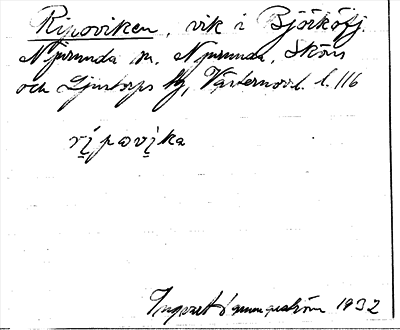 Ripoviken, vik i Björköfj.
Njurunda sn, Njurunda, Sköns
och Ljustorps tg, Västernorrl. l. 116
ripovika
Ingvar 1932